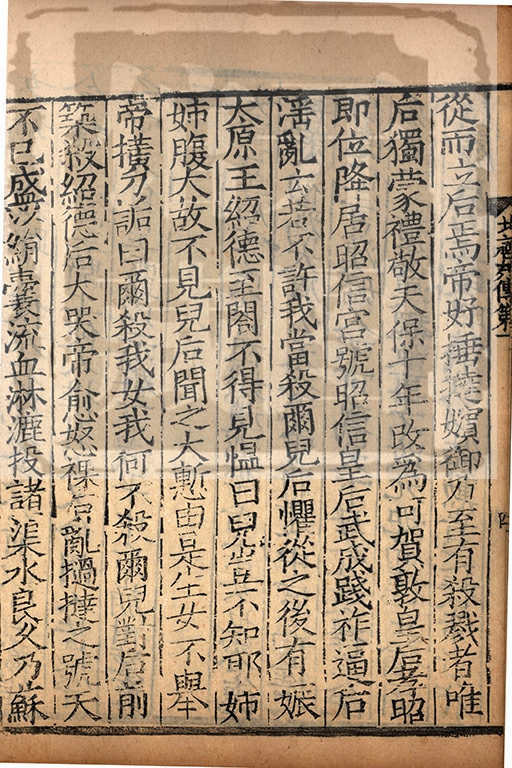 從而立后焉帝好捶撻嬪御乃至有殺戮者唯
后獨蒙禮敬天保十年改為可賀敦皇后孝昭
即位降居昭信宮號昭信皇后武成踐祚逼后
淫亂云若不許我當殺爾兒后懼從之後有娠
太原王紹德至閤不得見慍曰兒豈不知耶姊
姊腹大故不見兒后聞之大慙由是生女不舉
帝橫刀詬曰爾殺我女我何不殺爾兒對后前
築殺紹德后大哭帝愈怒裸后亂撾撻之號天
不已盛以絹囊流血淋漉投諸渠水良久乃蘇
北齊書傳第一